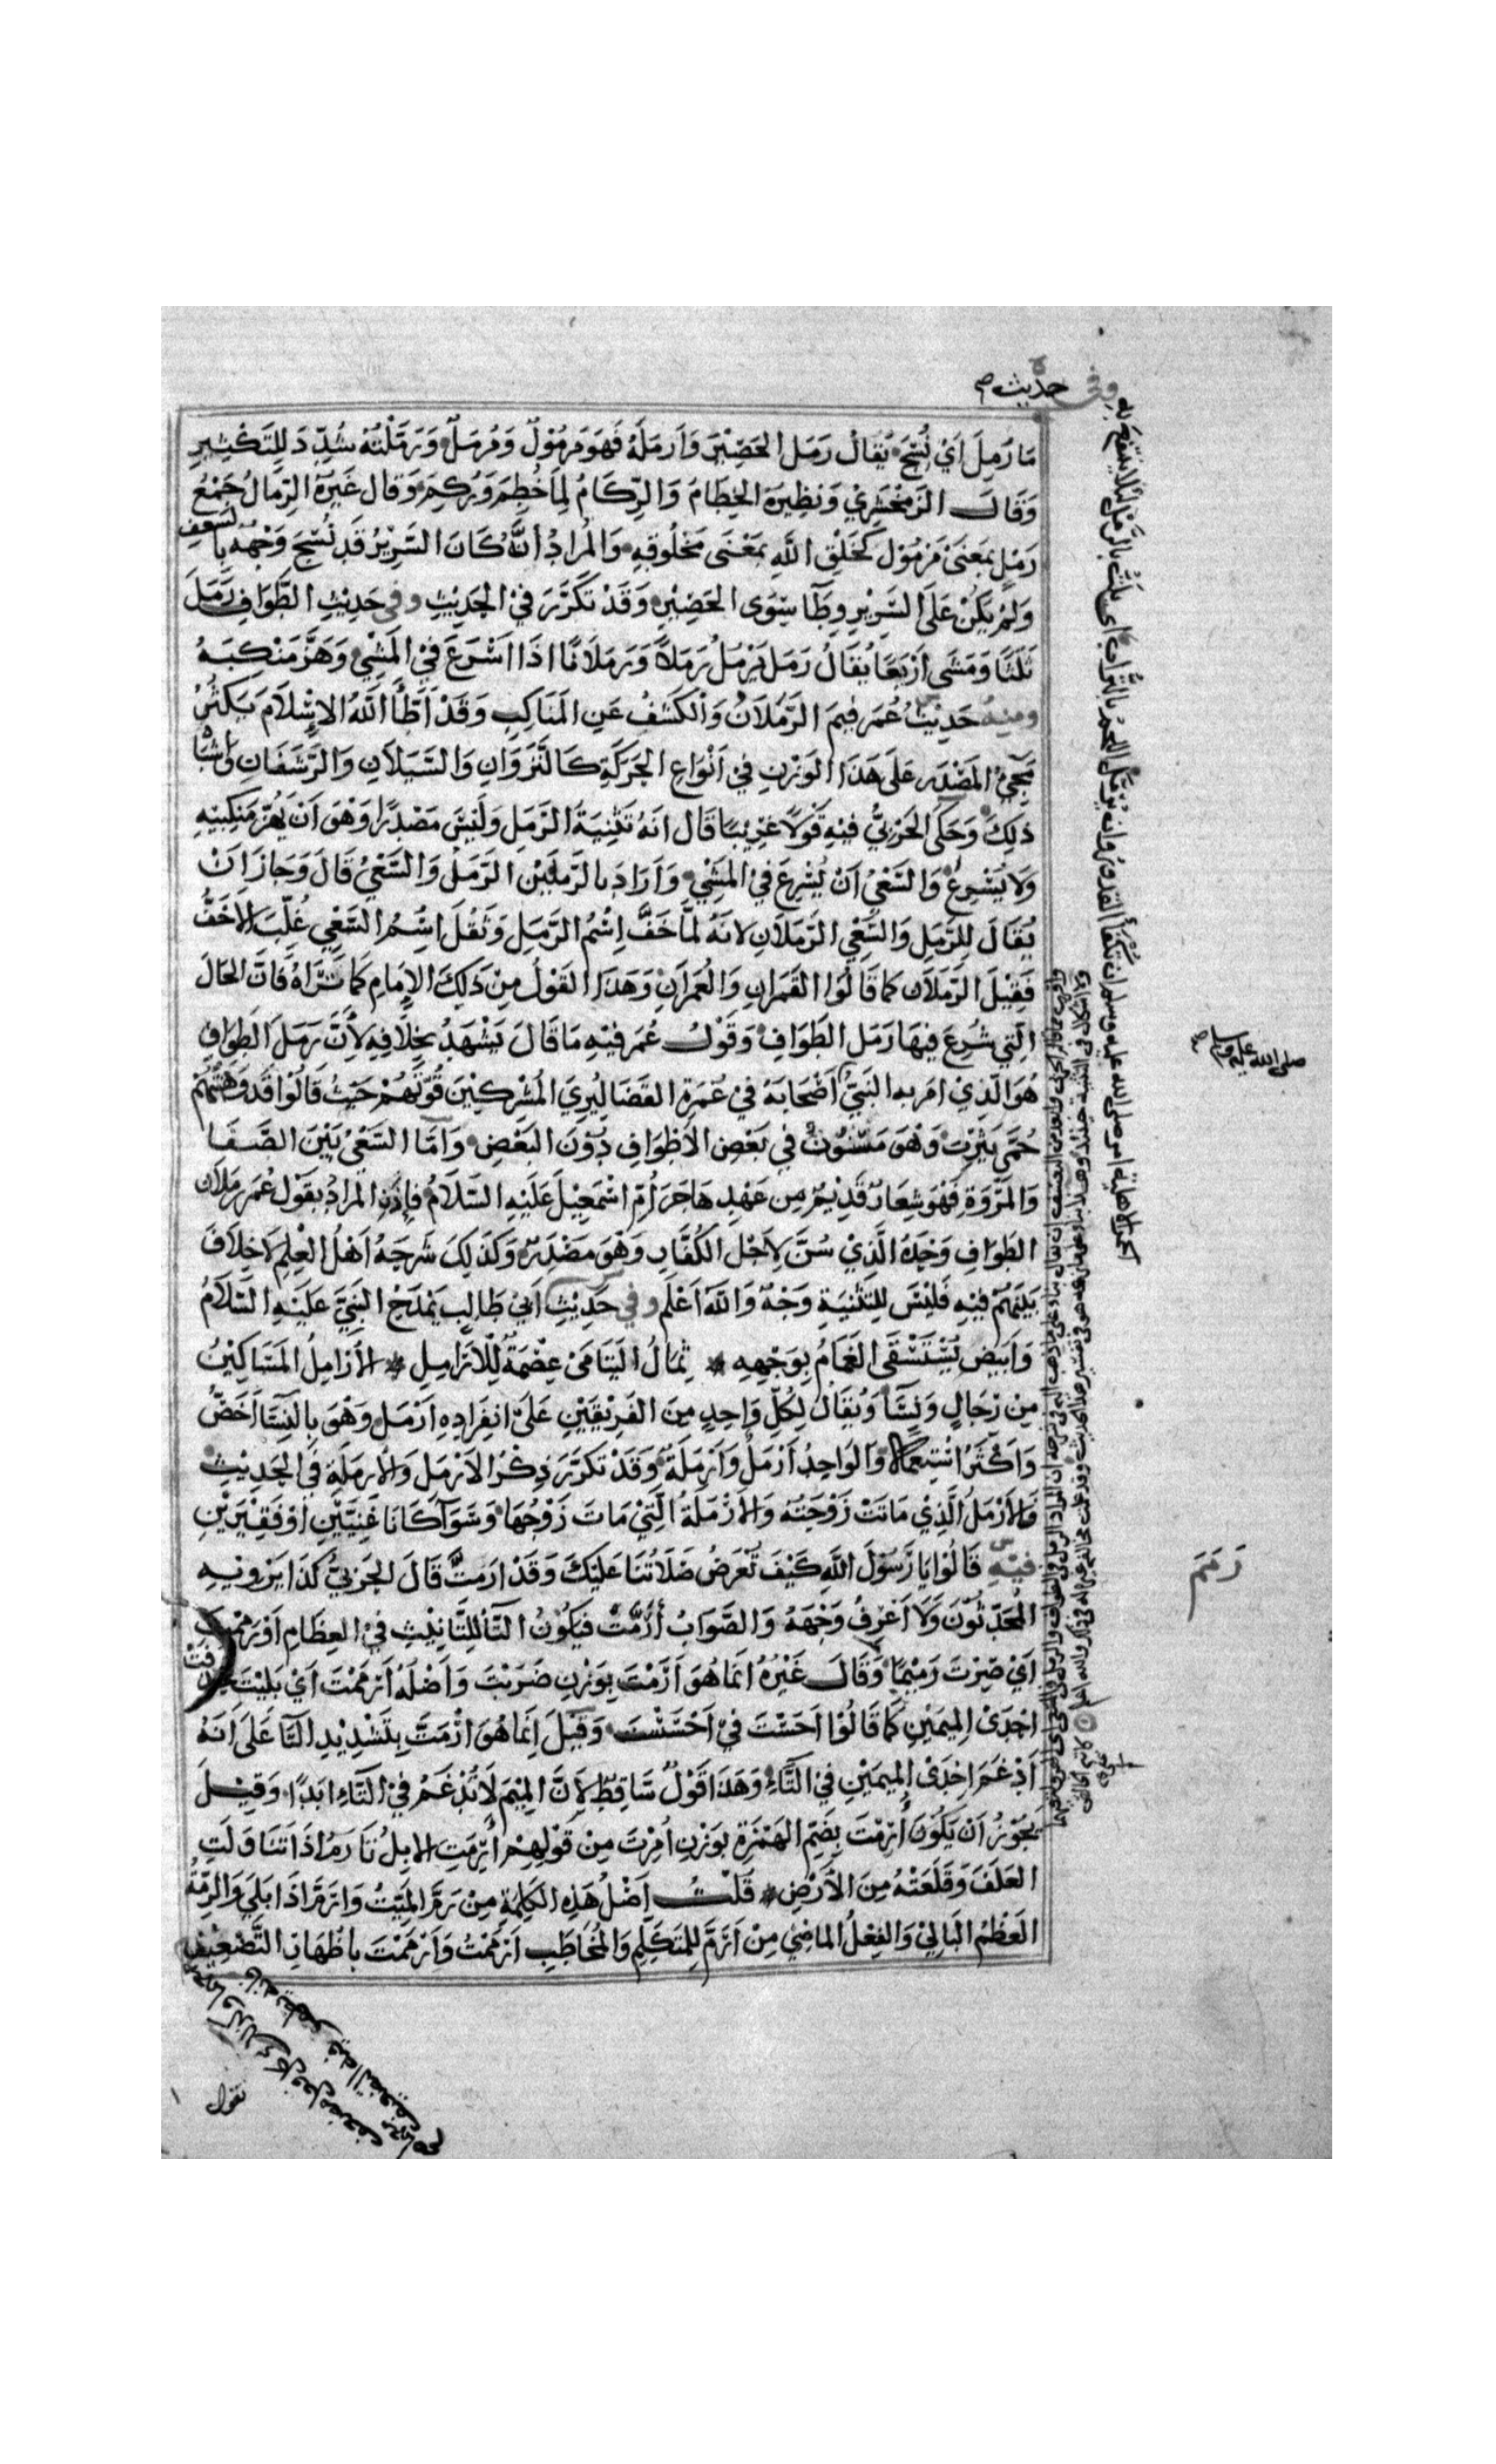 وفي حديث
مَا رُمِلَ اَيْ نُسِجَ يُقَالُ رَمَلَ الحَصِيْرَ وَاَرمَلَهُ فَهُوَ مَرمُوْلٌ وَمُرمَلٌ وَرَمَّلْتُهُ شُدِّدَ لِلتَّكْثِيرِ
وَقَالَ الزَمَخْشَرِيْ وَنَظِيْرَهُ الخُطَامُ وَالرُّكَامُ لِمَا خُطِمَ وَرُكِمَ وَقَالَ غَيرُهُ الرِّمَالُ جَمْعُ
رَمْلٍ بمَعْنَىْ مَرْمُوْلٍ كخَلْقِ اللّهِ بمَعْنَى مَخْلُوقِهِ وَالمُرادُ انَّهُ كَانَ السَّرِيْرُ قَد نُسِجَ وَجْهُهُ بالسَّعفِ
وَلَمْ يَكُنْ عَلَى السَّرِيْرِ وِطَآ سِوَى الحَصِيْرِ وَقَدْ تَكَرَّرَ فيْ الحَدِيْثِ وفى حَدِيْثِ الطَّوَافِ رَمَلَ
ثَلثًا وَمَشَى اَرْبَعًا يُقَالُ رَمَلَ يَرْمُلُ رَمَلاً وَرَمَلاَنًا اذَا اَسْرَعَ فيْ المَشْيِ وَهَزَّ مَنْكِبَيْهُ
ومنهُ حَدِيْثُ عُمَر فِيمَ الرَّمَلاَنُ وَالكَشْفُ عَنِ المَنَاكِبِ وَقَدْ اَطَّأَ اللّهُ الاِسْلاَمَ يَكثُرُ
مَجِيْءُ المَصْدَرِ عَلَى هَذَا الوَزْنِ فيْ اَنْوَاعِ الحَرَكَةِ كَالنَّزَوَانِ وَالنَّسَلاَنِ وَالرَّسَفَانِ واَشْبَاهِ
ذلِكَ وَحَكَى الحَرْبيُّ فيْهِ قَوْلاً غَرِيْبًا قَال انَهُ تَثْنِيَةُ الرَّمَلِ وَلَيْسَ مَصْدَرًا وَهْوَ اَنْ يَهُزَّ مَنكِبَيْهِ
وَلاَ يُسْرِعُ وَالسَّعْيُ اَنْ يُسْرِعَ فيْ المَشْيِ وَاَرَادَ بالرَّمَلَيْنِ الرَّمَلَ وَالسَّعْيَ قَالَ وَجَازَ اَنْ
يُقَالَ لِلرَّمَلِ وَالسَّعْيِ الرَّمَلاَنِ لاَنَهُ لمَّا خَفَّ اِسْمُ الرَّمَلِ وَثَقُلَ اِسْمُ السَّعْيِ غُلِّبَ الاَخَفُّ
فَقِيْلَ الرَّمَلاَن كمَا قَالُوْا القَمَرانِ وَالعُمَرَانِ وَهَذَا القَوْلُ مِنْ ذَلِكَ الاِمَامِ كمَا تَرَاهُ فَانَّ الحَالَ
الَتِي شُرِعَ فِيهَا رَمَلُ الطَوَافِ وَقَوْلُ عُمَر فيْهِ مَا قَالَ يَشْهَدُ بخِلاَفِهِ لأَنَّ رَمَلَ الطَوَافِ
هُوَ الَّذِيْ امَر به النَبيّ اَصْحَابَهُ فيْ عُمْرَةِ القَضَا لِيُرِيَ المُشْرِكِيْنَ قُوَّتَهُمْ حَيْثُ قَالُوْا قَد وَهَنَتْهُمْ
حُمَّى يَثْرِبَ وَهْوَ مَسْنُوْنٌ في بَعْضِ الاَطْوَافِ دُوْنَ البَعْضِ وَاَمَّا السَّعْيُ بَيْنَ الصَّفَا
وَالمَرْوَةِ فَهْوَ شِعَارٌ قَدِيْمٌ مِن عَهْدِ هَاجَرَ اُمِّ اسْمَعِيْلَ عَلَيْهِ السَّلاَمُ فَاِذَنِ المُرَادُ بقَوْلِ عُمَر رَمَلاَن
الطَوَافِ وَحْدَهُ الَّذِيْ سُنَّ لِاَجْلِ الكُفَّارِ وَهْوَ مَصْدَرٌ وَكَذَلِكَ شَرَحَهُ اَهْلُ العِلْمِ لاَ خِلاَفَ
بَيْنَهُمْ فيْهِ فَلَيْسَ لِلتَّثْنِيَةِ وَجْهٌ وَاللّهُ اَعْلَم وفي حَدِيْثِ اَبيْ طَالِبٍ يَمْدَحُ النَبيَّ عَلَيْهِ السَّلاَمُ
وَاَبيَضَ يُسْتَسْقَى الغَمَامُ بِوَجْهِهِ * ثِمَالُ اليَتَامَىْ عِصْمَةٌ لِلْاَرَامِلِ * الاَرَامِلُ المَسَاكِيْنُ
مِنْ رِجَالٍ وَنِسَآ وَيُقَالُ لِكُلِّ وَاحِدٍ مِنَ الفَرِيْقَيْنِ عَلَى انفِرَادِهِ اَرمَل وَهْوَ بِالنِسَآ اَخَصُّ
وَاَكْثَرُ اسْتِعمَالا وَالوَاحِدُ اَرْمَلُ وَاَرْمَلَةٌ وَقَدْ تَكَرَّرَ ذِكْرُ الاَرْمَلِ وَالارمَلَةِ فيْ الحَدِيْثِ
فَالاَرْمَلُ الَّذِيْ مَاتَتْ زَوْجَتُهُ وَالاَرْمَلَةُ الَّتِيْ مَاتَ زَوْجُهَا وَسَوَآ كَانَا غَنِيَّيْنِ اَوْ فَقِيْرَيْنِ
فيْهِ قَالُوْا يَا رَسُوْلَ اللّهِ كَيْفَ تُعْرَضُ صَلاَتُنَا عَلَيْكَ وَقَدْ اَرَمَّتْ قَالَ الحَرْبيُّ كَذَا يَرْوِيْهِ
المُحَدِّثُوْنَ وَلاَ اَعْرِفُ وَجْهَهُ وَالصَّوَابُ أَرَمَّتْ فيَكُوْنُ التَّآ لِلتَّانِيْثِ فيْ العِظَامِ اَوْ رَمِمْتَ
اَيْ صِرْتَ رَمِيْمًا وَقَالَ غَيْرُهُ انَمَا هُوَ اَرَمْتَ بوَزْنِ ضَرَبْتَ وَاَصْلُهُ اَرْمَمْتَ اَيْ بَلِيْتَ فحُذِفَتْ
احْدَىْ المِيمَيْنِ كمَا قَالُوْا اَحَسْتَ فيْ اَحْسَسْتَ وَقِيْلَ اِنَمَا هُوَ ارْمَتَّ بِتَشْدِيْدِ التَّا عَلَى اَنَهُ
اَدْغَمَ اِحْدَىْ المِيمَيْنِ فيْ التَّاءِ وَهَذَا قَوْلٌ سَاقِطٌ لِاَنَّ المِيْمَ لاَ تُدْغَمُ فيْ التَّاءِ ابَدًا وَقِيْلَ
يَجُوْزُ اَنْ يَكُوْنَ أُرِمْتَ بِضَمِّ الهَمْزَةِ بوَزْنِ اُمِرْتَ مِنْ قَوْلِهِمْ أُرِمَتِ الابِلُ تَأرَمُ اذَا تَنَاوَلَتِ
العَلَفَ وَقَلَعَتْهُ مِنَ الأَرْضِ * قُلْتُ اَصْلُ هَذِهِ الكَلِمَةِ مِنْ رَمَّ المَيِّتُ وَارَمَّ اذَا بَلِيَ وَالرِّمَّةُ
العَظْمُ البَالِيْ وَالفِعْلُ المَاضِيْ مِنْ اَرَمَّ لِلْمُتَكَلِّمِ وَالمُخَاطَبِ اَرْمَمْتُ وَاَرْمَمْتَ باظْهَارِ التَّضْعِيْفِ
صلى الله عليه وسلم
رَمَمَ
تقول